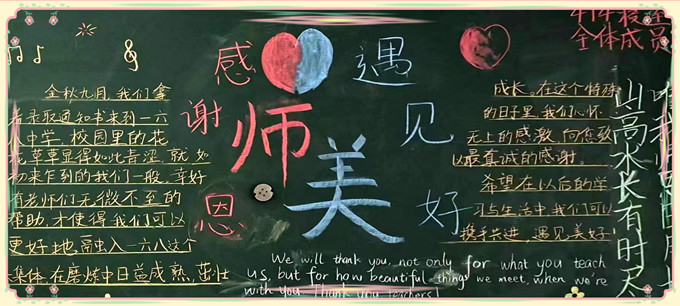 感 遇
谢 师 见
恩 美 好
金秋九月,我们拿
着录取通知书来到一六
八中学,校园里的花
花草草显得如此青涩,就如
初来乍到的我们一般,幸好
有老师们无微不至的
帮助,才使得我们可以
更好地融入一六八这个
集体,在磨炼中日益成熟,茁壮
成长,在这个特殊
的日子里,我们心怀
无上的感激,向您致
以最真诚的感谢。
希望在以后的学
习与生活中,我们可以
携手共进,遇见美好!
We will thank you, not only for what you teach
us, but for how beautiful things we meet, when we're
with you. Thank you teachers!
414
全体成员
山高水长有时尽
唯我师恩